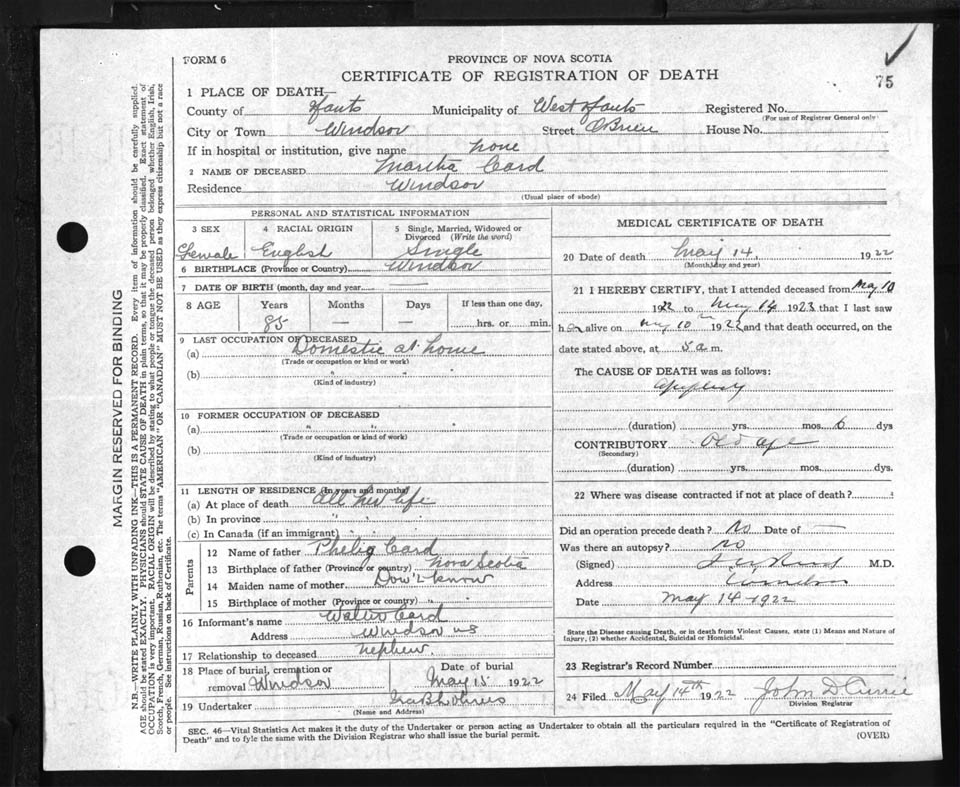 FORM 6
PROVINCE OF NOVA SCOTIA
CERTIFICATE OF REGISTRATION OF DEATH
75
1 PLACE OF DEATH—
County of Hants Municipality of West Hants Registered No.
(For use of Registrar General only)
City or Town Windsor Street OBrien House No.
If in hospital or institution, give name none
2 NAME OF DECEASED Martha Card
Residence Windsor
(Usual place of abode)
PERSONAL AND STATISTICAL INFORMATION
3 SEX 4 RACIAL ORIGIN 5 Single, Married, Widowed or Divorced (Write the word)
Female English Single
6 BIRTHPLACE (Province or Country) Windsor
7 DATE OF BIRTH (month, day and year —
8 AGE Years Months Days If less than one day,
85 — — hrs. or min.
9 LAST OCCUPATION OF DECEASED
(a) Domestic at home
(Trade or occupation or kind or work)
(b) " " "
(Kind of industry)
10 FORMER OCCUPATION OF DECEASED
(a) " " "
(Trade or occupation or kind of work)
(b)
(Kind of industry)
11 LENGTH OF RESIDENCE (In years and months)
(a) At place of death all her life
(b) In province
(c) In Canada (if an immigrant)
Parents
12 Name of father Philip Card
13 Birthplace of father (Province or country) Nova Scotia
14 Maiden name of mother Dow't know
15 Birthplace of mother (Province or country)
16 Informant's name Walter Card
Address Windsor NS
17 Relationship to deceased nephew
18 Place of burial, cremation or removal Windsor Date of burial May 15 1922
19 Undertaker
(Name and Address)
MEDICAL CERTIFICATE OF DEATH
20 Date of death May 14, 1922
(Month, day and year)
21 I HEREBY CERTIFY, that I attended deceased from May 10
1922 to May 14 1923 that I last saw
her alive on May 10 1922 and that death occurred, on the
date stated above, at 5 a m.
The CAUSE OF DEATH was as follows:
(duration) yrs. mos. 6 dys
CONTRIBUTORY Old age
(Secondary)
(duration) yrs. mos. dys.
22 Where was disease contracted if not at place of death?
Did an operation precede death? No Date of —
Was there an autopsy? no
(Signed) M.D.
Address Windsor
Date May 14 1922
State the Disease causing Death, or in death from Violent Causes, state (1) Means and Nature of
Injury, (2) whether Accidental, Suicidal or Homicidal.
23 Registrar's Record Number
24 Filed May 14th 1922 John D Currie
Division Registrar
SEC. 46—Vital Statistics Act makes it the duty of the Undertaker or person acting as Undertaker to obtain all the particulars required in the "Certificate of Registration of
Death" and to fyle the same with the Division Registrar who shall issue the burial permit.
(OVER)
MARGIN RESERVED FOR BINDING
N.B.—WRITE PLAINLY WITH UNFADING INK—THIS IS A PERMANENT RECORD. Every item of information should be carefully supplied.
AGE should be stated EXACTLY. PHYSICIANS should STATE CAUSE OF DEATH in plain terms, so that it may be properly classified. Exact statement of
OCCUPATION is very important. RACIAL ORIGIN will be described by stating to what people or tongue the deceased person belonged whether English, Irish,
Scotch, French, German, Russian, Ruthenian, etc. The terms "AMERICAN" OR "CANADIAN" MUST NOT BE USED as they express citizenship but not a race
or people. See instructions on back of Certificate.